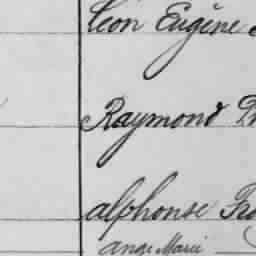 Léon Eugène
Raymond
alphonse
ange Marie